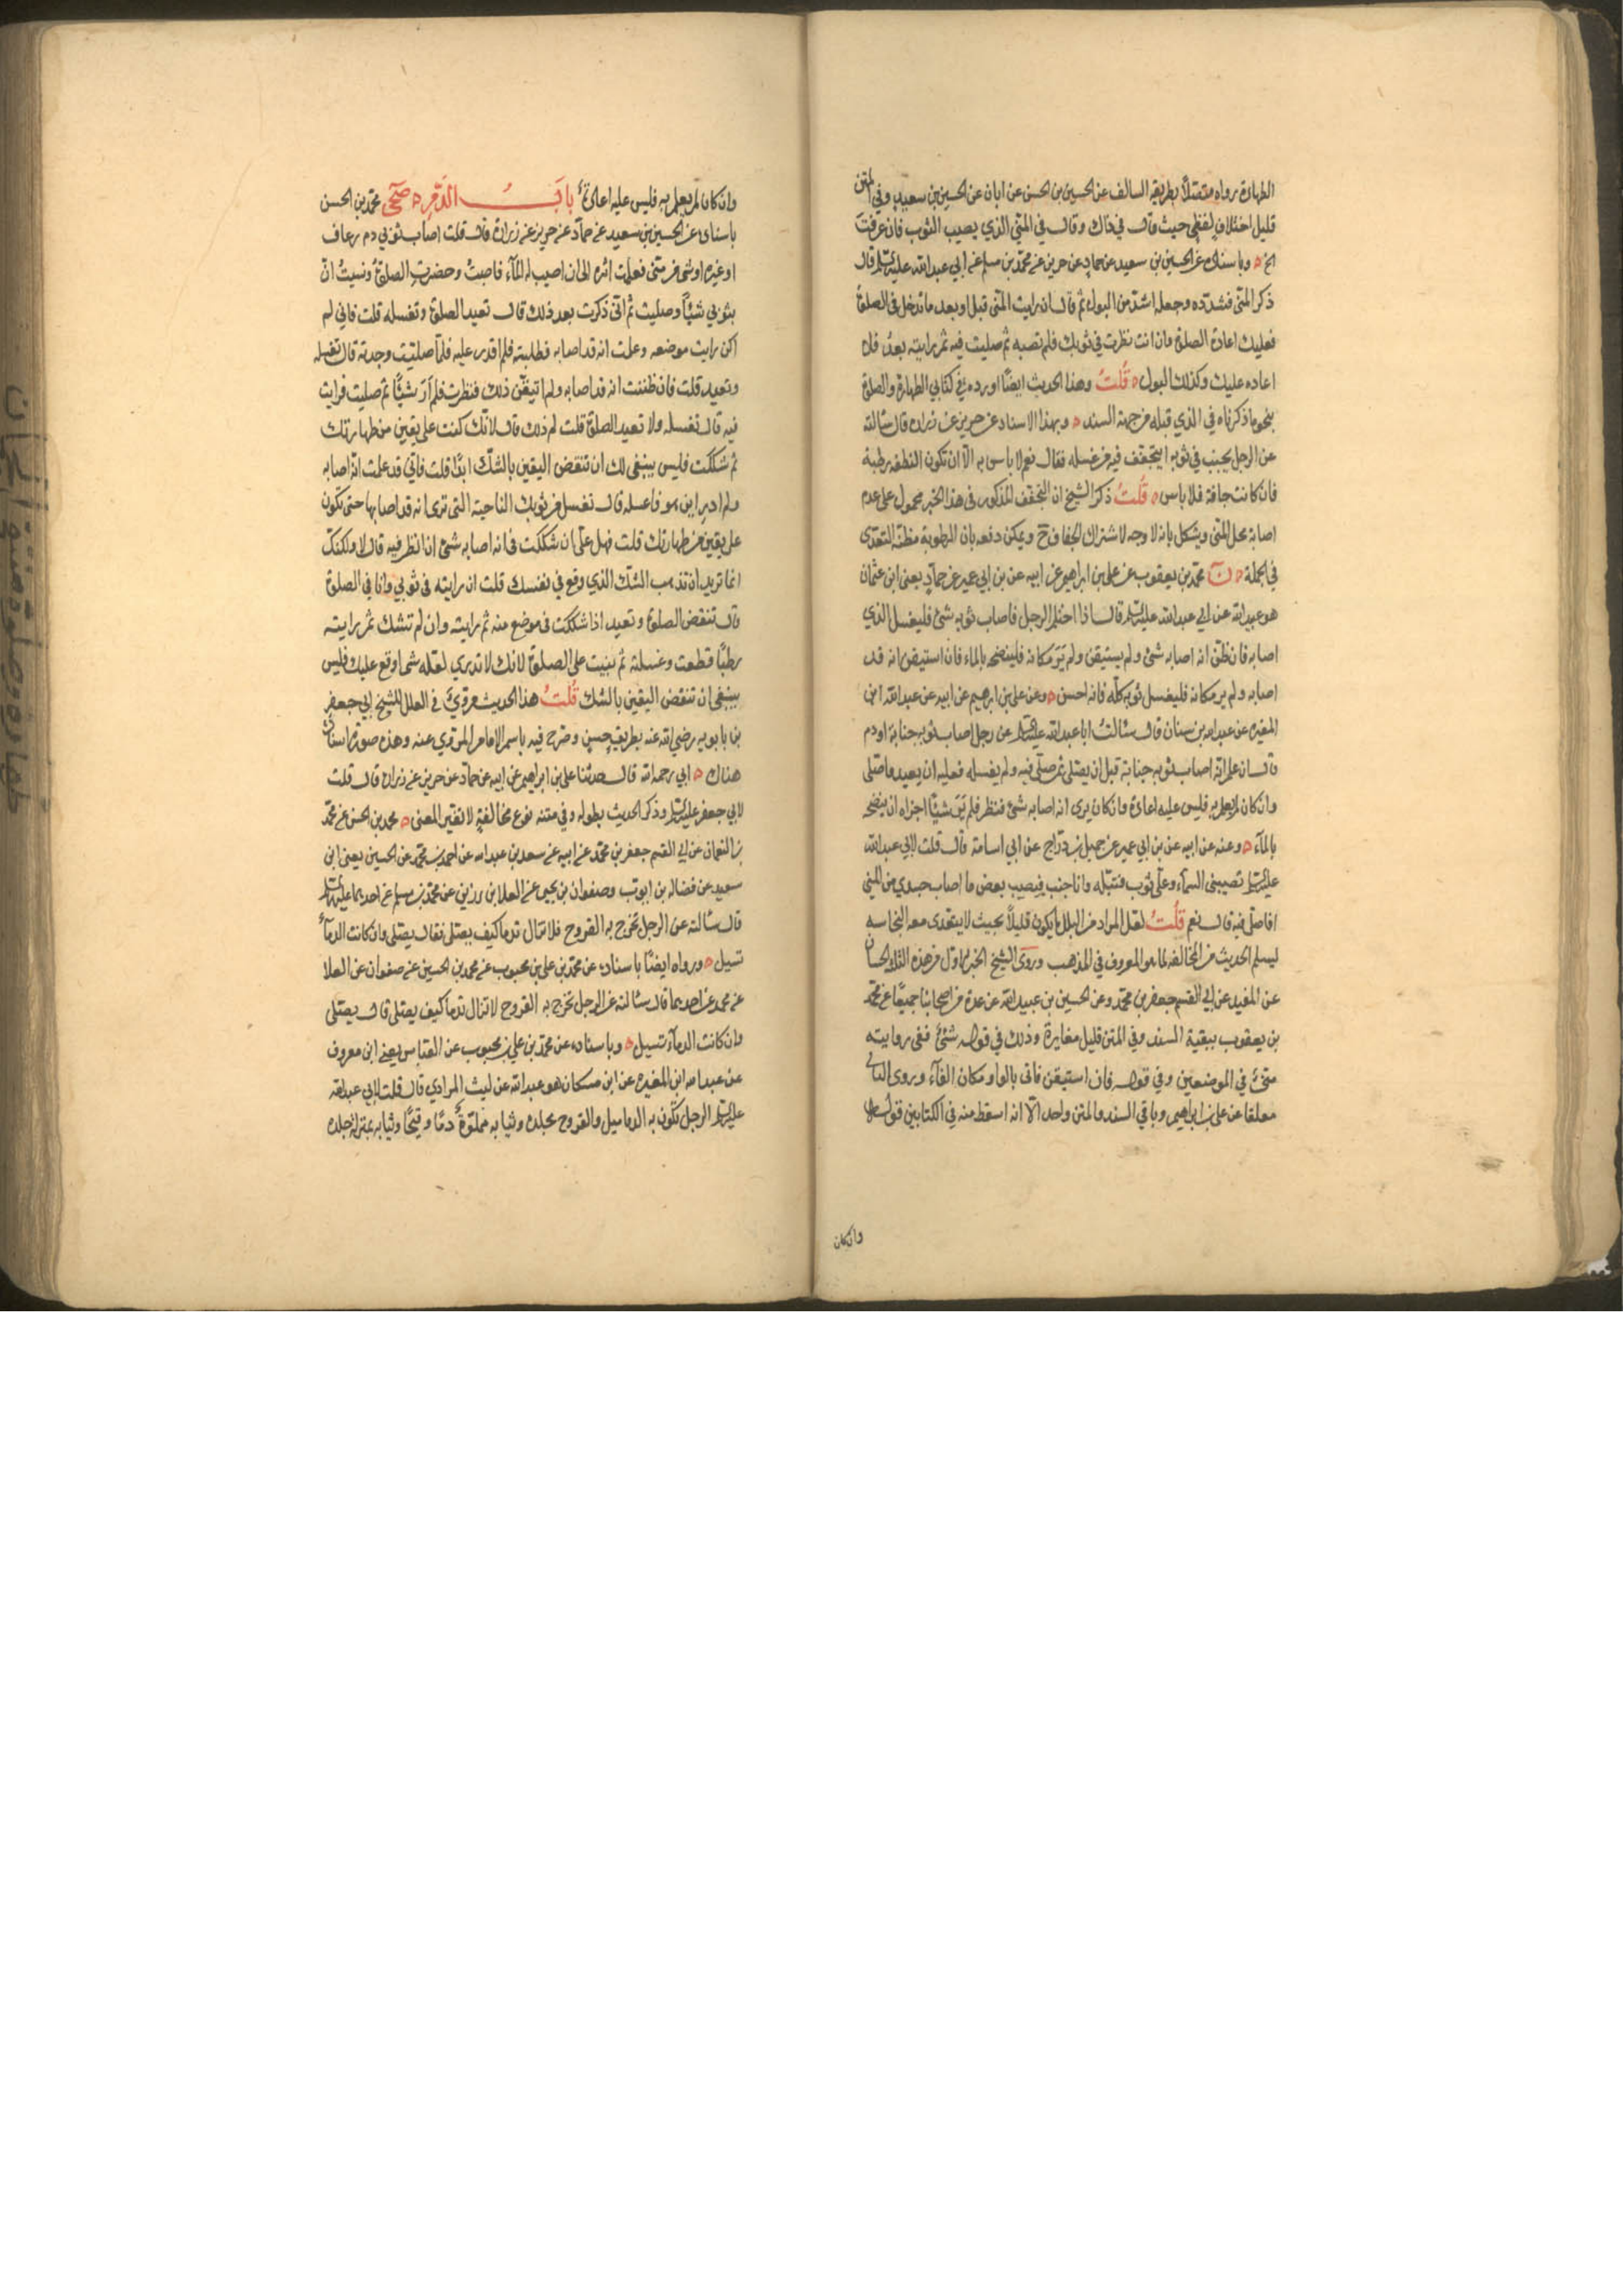 الطهارة رواه متصلا بطريقه السالف عن الحسين بن الحسن عن ابان عن الحسين بن سعيد وفي المتن
قليل اختلاف لفظي حيث قال في ذاك وقال في المني الذي يصيب الثوب فان عرفت
الخ ه وباسناده عن الحسين بن سعيد عن حماد عن حريز عن محمد بن مسلم عن ابي عبد الله عليه السلم قال
ذكر المني فشدده وجعله اشد من البول ثم قال ان رايت المني قبل او بعد ما تدخل في الصلوة
فعليك اعادة الصلوة وان انت نظرت في ثوبك فلم تصبه ثم صليت فيه ثم رايته بعد فلا
اعاده عليك وكذلك البول ه قلت وهذا الحديث ايضا اورده في كتابي الطهارة والصلوة
بنحو ما ذكرناه في الذي قبله من جهة السند ه وبهذا الاسناد عن حريز عن زراره قال سالته
عن الرجل يجنب في ثوبه ايتجفف فيه من غسله فقال نعم لا باس به الا ان تكون النطفه رطبة
فان كانت جافة فلا باس ه قلت ذكر الشيخ ان التجفف المذكور في هذا الخبر محمول على عدم
اصابة محل المني ويشكل بانه لا وجه لاشتراط الجفاف ح ويمكن دفعه بان الرطوبة مظنة التعدى
في الجملة ه ن محمد بن يعقوب عن علي بن ابراهيم عن ابيه عن بن ابي عمير عن حماد يعنى ابن عثمان
هو عبيد الله عن ابي عبد الله عليه السلم قال اذا احتلم الرجل فاصاب ثوبه شئ فليغسل الذي
اصابه فان ظن انه اصابه شئ ولم يستيقن ولم ير مكانه فلينضحه بالماء فان استيقن انه قد
اصابه ولم ير مكانه فليغسل ثوبه كله فانه احسن ه وعن علي بن ابرهيم عن ابيه عن عبد الله ابن
المغيره عن عبد الله بن سنان قال سئالت ابا عبد الله عليه السلم عن رجل اصاب ثوبه جنابة او دم
قال ان علم انه اصاب ثوبه جنابة قبل ان يصلى ثم صلى فيه ولم يغسله فعليه ان يعيد ما صلى
وان كان لم يعلم به فليس عليه اعادة وان كان يرى انه اصابه شئ فنظر فلم ير شيئا اجزاه ان ينضحه
بالماء ه وعنه عن ابيه عن بن ابي عمير عن جميل بن دراج عن ابي اسامة قال قلت لابي عبد الله
عليه السلم تصيبنى السماء وعلي ثوب فتبله وانا جنب فيصيب بعض ما اصاب جسدي من المني
افاصلي فيه قال نعم قلت لعل المراد من البلل ما يكون قليلا بحيث لا يتعدى معه النجاسه
ليسلم الحديث من المخالفه لما هو المعروف في المذهب وروى الشيخ الخبر الاول من هذه الثلث الحسان
عن المفيد عن ابي القسم جعفر بن محمد وعن الحسين بن عبيد الله عن عدة من اصحابنا جميعا عن محمد
بن يعقوب ببقية السند وفي المتن قليل مغايرة وذلك في قوله شئ ففى روايته
مني في الموضعين وفي قوله فان استيقن فاتى بالواو مكان الفاء وروى الثاني
معلقا عن علي بن ابراهيم وباقي السند والمتن واحد الا انه اسقط منه في الكتابين قوله
وان كان
وان كان لم يعلم به فليس عليه اعادة باب الدم ه صحى محمد بن الحسن
باسناده عن الحسين بن سعيد عن حماد عن حريز عن زرارة قال قلت اصاب ثوبي دم رعاف
او غيره او شئ من مني فعلمت اثره الى ان اصيب له الماء فاصبت وحضرت الصلوة ونسيت ان
بثوبي شيئا وصليت ثم اني ذكرت بعد ذلك قال تعيد الصلوة وتغسله قلت فاني لم
اكن رايت موضعه وعلمت انه قد اصابه فطلبته فلم اقدر عليه فلما صليت وجدته قال تغسله
وتعيد قلت فان ظننت انه قد اصابه ولم اتيقن ذلك فنظرت فلم ار شيئا ثم صليت فرايت
فيه قال تغسله ولا تعيد الصلوة قلت لم ذلك قال لانك كنت على يقين من طهارتك
ثم شككت فليس ينبغى لك ان تنقض اليقين بالشك ابدا قلت فاني قد علمت انه اصابه
ولم ادر اين هو فاغسله قال تغسل من ثوبك الناحية التى ترى انه قد اصابها حتى تكون
على يقين من طهارتك قلت فهل علي ان شككت في انه اصابه شئ ان انظر فيه قال لا ولكنك
انما تريد ان تذهب الشك الذي وقع في نفسك قلت ان رايته في ثوبي وانا في الصلوة
قال تنقض الصلوة وتعيد اذا شككت في موضع منه ثم رايته وان لم تشك ثم رايته
رطبا قطعت وغسلته ثم بنيت على الصلوة لانك لا تدري لعله شئ اوقع عليك فليس
ينبغى ان تنقض اليقين بالشك قلت هذا الحديث مروي في العلل للشيخ ابي جعفر
بن بابويه رضي الله عنه بطريق حسن وصرح فيه باسم الامام المروي عنه وهذه صورة اسناده
هناك ه ابي رحمه الله قال حدثنا علي بن ابراهيم عن ابيه عن حماد عن حريز عن زراره قال قلت
لابي جعفر عليه السلم وذكر الحديث بطوله وفي متنه نوع مخالفة لا تغير المعنى ه محمد بن الحسن عن محمد
بن النعمان عن ابي القسم جعفر بن محمد عن ابيه عن سعد بن عبد الله عن احمد بن محمد عن الحسين يعنى ابن
سعيد عن فضاله بن ايوب وصفوان بن يحيى عن العلا بن رزين عن محمد بن مسلم عن احدهما عليهما السلم
قال سالته عن الرجل تخرج به القروح فلا تزال تدما كيف يصلى فقال يصلى وان كانت الدماء
تسيل ه ورواه ايضا باسناده عن محمد بن علي بن محبوب عن محمد بن الحسين عن صفوان عن العلا
عن محمد عن احدهما قال سئالته عن الرجل تخرج به القروح لا تزال تدما كيف يصلى قال يصلى
وان كانت الدماء تسيل ه وباسناده عن محمد بن علي بن محبوب عن العباس يعني ابن معروف
عن عبد الله ابن المغيره عن ابن مسكان هو عبد الله عن ليث المرادي قال قلت لابي عبد الله
عليه السلم الرجل تكون به الدماميل والقروح بجلده وثيابه مملوة دما وقيحا وثيابه بمنزلة جلده